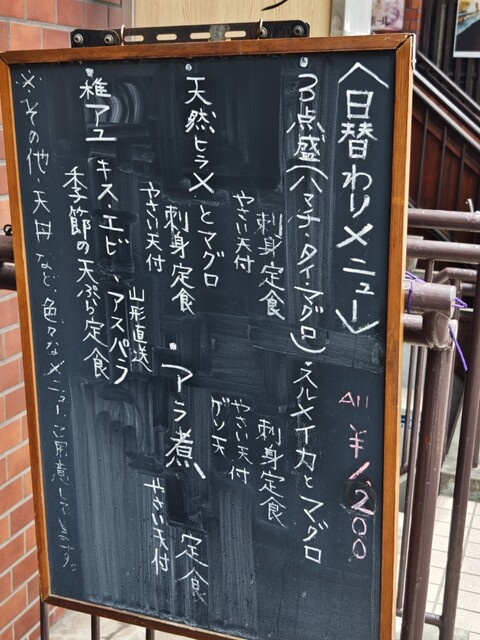 〈日替わりメニュー〉
All ¥1,200
・3点盛(ハマチ・タイ・マグロ)
刺身定食
やさい天付
・スルメイカとマグロ
刺身定食
やさい天付
ゲソ天
・天然ヒラメとマグロ
刺身定食
やさい天付
・アラ煮
定食
やさい天付
・稚アユ キス エビ、アスパラ
山形直送
季節の天ぷら定食
※その他 天丼など色々なメニューご用意してます。